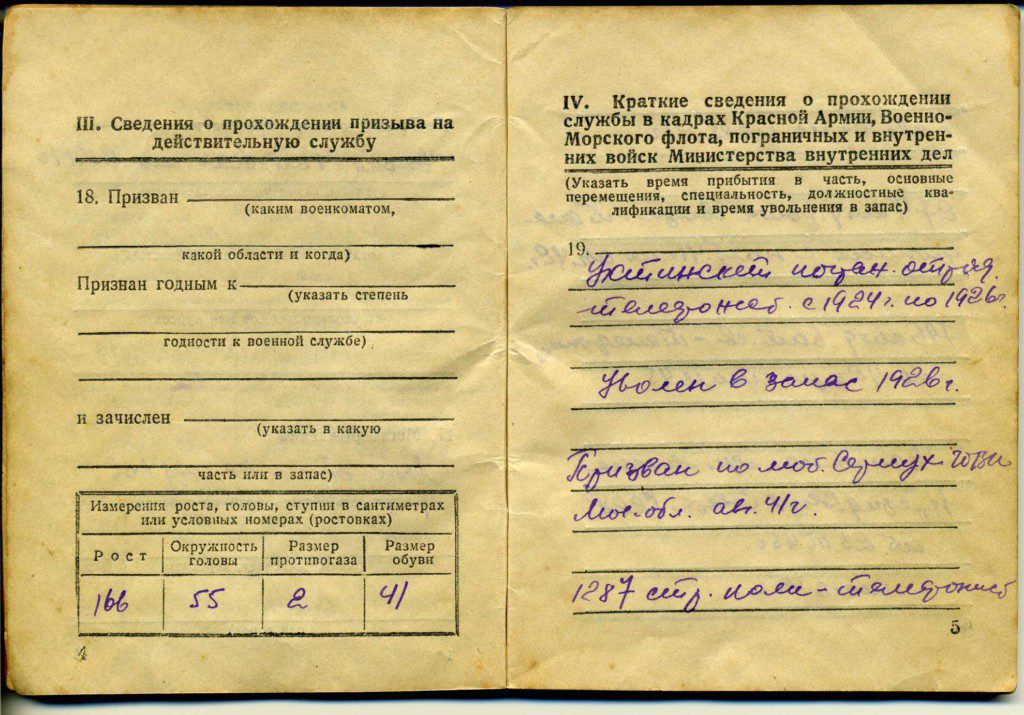 III. Сведения о прохождении призыва на
действительную службу
18. Призван
(каким военкоматом,
какой области и когда)
Признан годным к
(указать степень
годности к военной службе)
и зачислен
(указать в какую
часть или в запас)
Измерения роста, головы, ступни в сантиметрах
или условных номерах (ростовках)
Рост
Окружность
головы
Размер
противогаза
Размер
обуви
166 55 2 41
4
IV. Краткие сведения о прохождении
службы в кадрах Красной Армии, Военно-
Морского флота, пограничных и внутрен-
них войск Министерства внутренних дел
(Указать время прибытия в часть, основные
перемещения, специальность, должностные ква-
лификации и время увольнения в запас)
19.
отряд
с 1924 г. по 1926 г.
Уволен в запас 1926 г.
Призван по моб. Серпух.
Мос. обл. авг. 41 г.
1287 стр. полк - телефонист
5